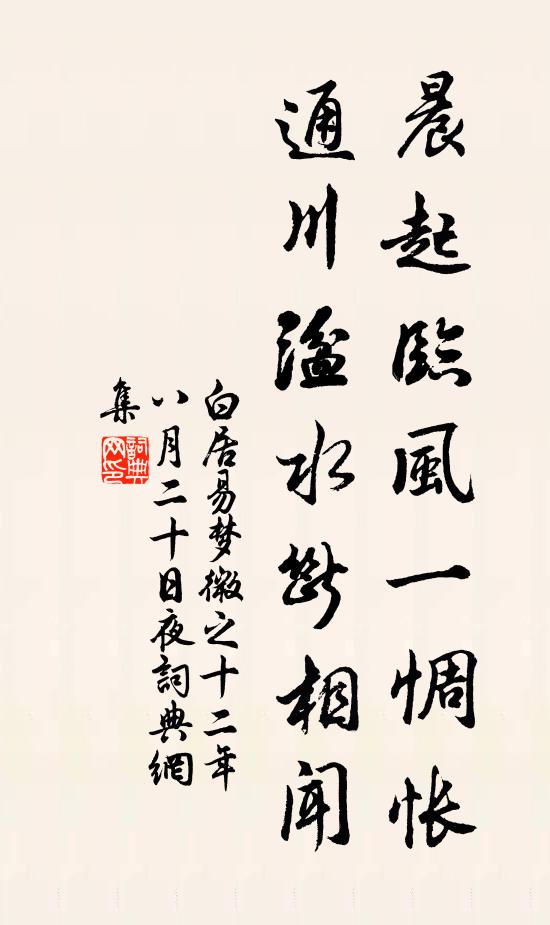 晨起臨風一惆帐
通川溢水斷相聞
白居易梦微之十二年
八月二十日夜詞典網
集
詞典
网印